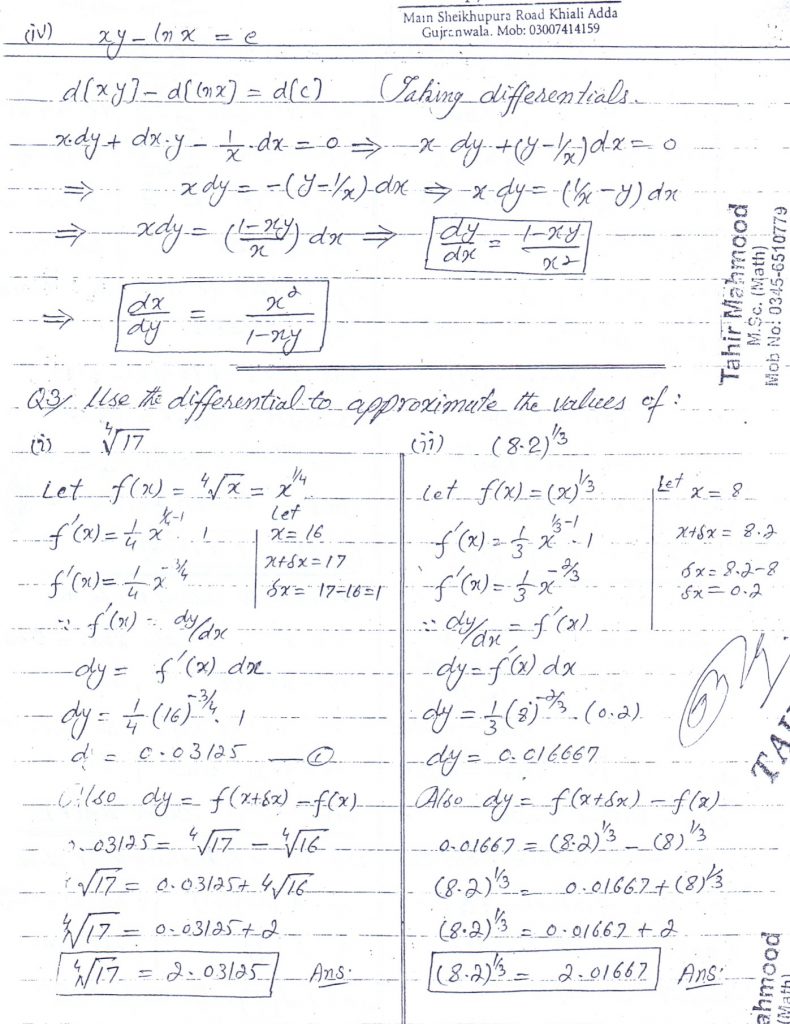 Main Sheikhupura Road Khiali Adda
Gujranwala. Mob: 03007414159
(iv) xy - ln x = c
d[xy] - d[lnx] = d[c] (Taking differentials.
x.dy + dx.y - 1/x .dx = 0 ⇒ x dy + (y - 1/x) dx = 0
⇒ x dy = -(y - 1/x) dx ⇒ x dy = (1/x - y) dx
⇒ xdy = (1-xy/x) dx ⇒ dy/dx = 1-xy/x²
⇒ dx/dy = x²/1-xy
Tahir Mahmood
M.Sc. (Math)
Mob No: 0345-6510779
Q3/ Use the differential to approximate the values of :
(i) ∜17
Let f(x) = ∜x = x^1/4
f'(x) = 1/4 x^1/4-1 . 1
f'(x) = 1/4 x^-3/4
Let
x = 16
x+δx = 17
δx = 17-16=1
∵ f'(x) = dy/dx
dy = f'(x) dx
dy = 1/4 (16)^-3/4 . 1
d = 0.03125 —①
Also dy = f(x+δx) - f(x)
.03125 = ∜17 - ∜16
√17 = 0.03125 + ∜16
∜17 = 0.03125 + 2
∜17 = 2.03125 Ans:
(ii) (8.2)^1/3
Let f(x) = (x)^1/3
f'(x) = 1/3 x^1/3-1 . 1
f'(x) = 1/3 x^-2/3
Let x = 8
x+δx = 8.2
δx = 8.2-8
δx = 0.2
∵ dy/dx = f'(x)
dy = f'(x) dx
dy = 1/3 (8)^-2/3 . (0.2)
dy = 0.016667
Also dy = f(x+δx) - f(x)
0.01667 = (8.2)^1/3 - (8)^1/3
(8.2)^1/3 = 0.01667 + (8)^1/3
(8.2)^1/3 = 0.01667 + 2
(8.2)^1/3 = 2.01667 Ans:
TAH
ahmood
(Math)